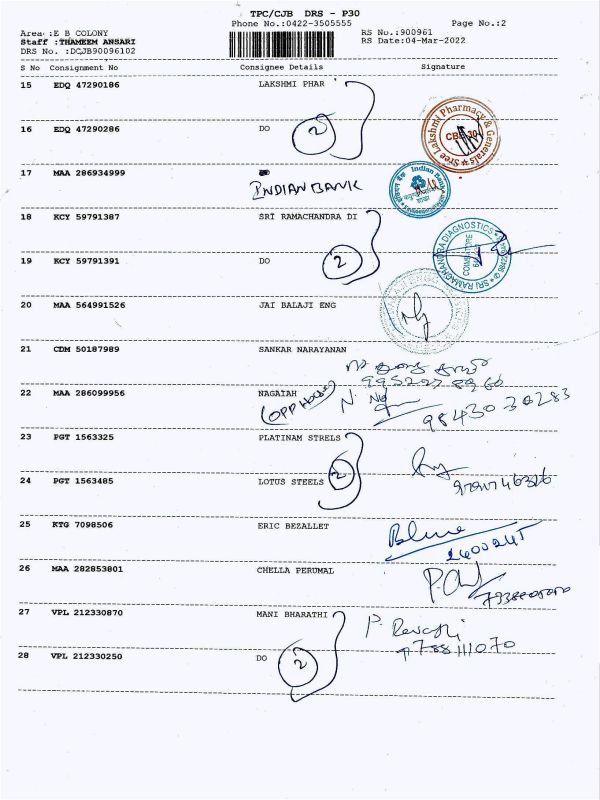 TPC/CJB DRS - P30
Phone No.:0422-3505555
Page No.:2
Area :E B COLONY
Staff :THAMEEM ANSARI
DRS No. :DCJB90096102
RS No.:900961
RS Date:04-Mar-2022
S No Consignment No Consignee Details Signature
15 EDQ 47290186 LAKSHMI PHAR
16 EDQ 47290286 DO 2
Sree Lakshmi Pharmacy & Generals
17 MAA 286934999 INDIAN BANK
Indian Bank
18 KCY 59791387 SRI RAMACHANDRA DI
19 KCY 59791391 DO 2
SRI RAMACHANDRA DIAGNOSTICS
20 MAA 564991526 JAI BALAJI ENG
21 CDM 50187989 SANKAR NARAYANAN
22 MAA 286099956 NAGAIAH
98430 30283
23 PGT 1563325 PLATINAM STRELS
24 PGT 1563485 LOTUS STEELS 2
25 KTG 7098506 ERIC BEZALLET
26 MAA 282853801 CHELLA PERUMAL
27 VPL 212330870 MANI BHARATHI
P. Revathi
28 VPL 212330250 DO 2